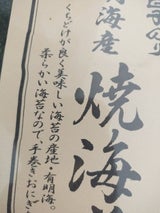 明海産
焼海
くちどけが良く美味しい海苔の産地・有明海。
柔らかい海苔なので、手巻きおにぎ